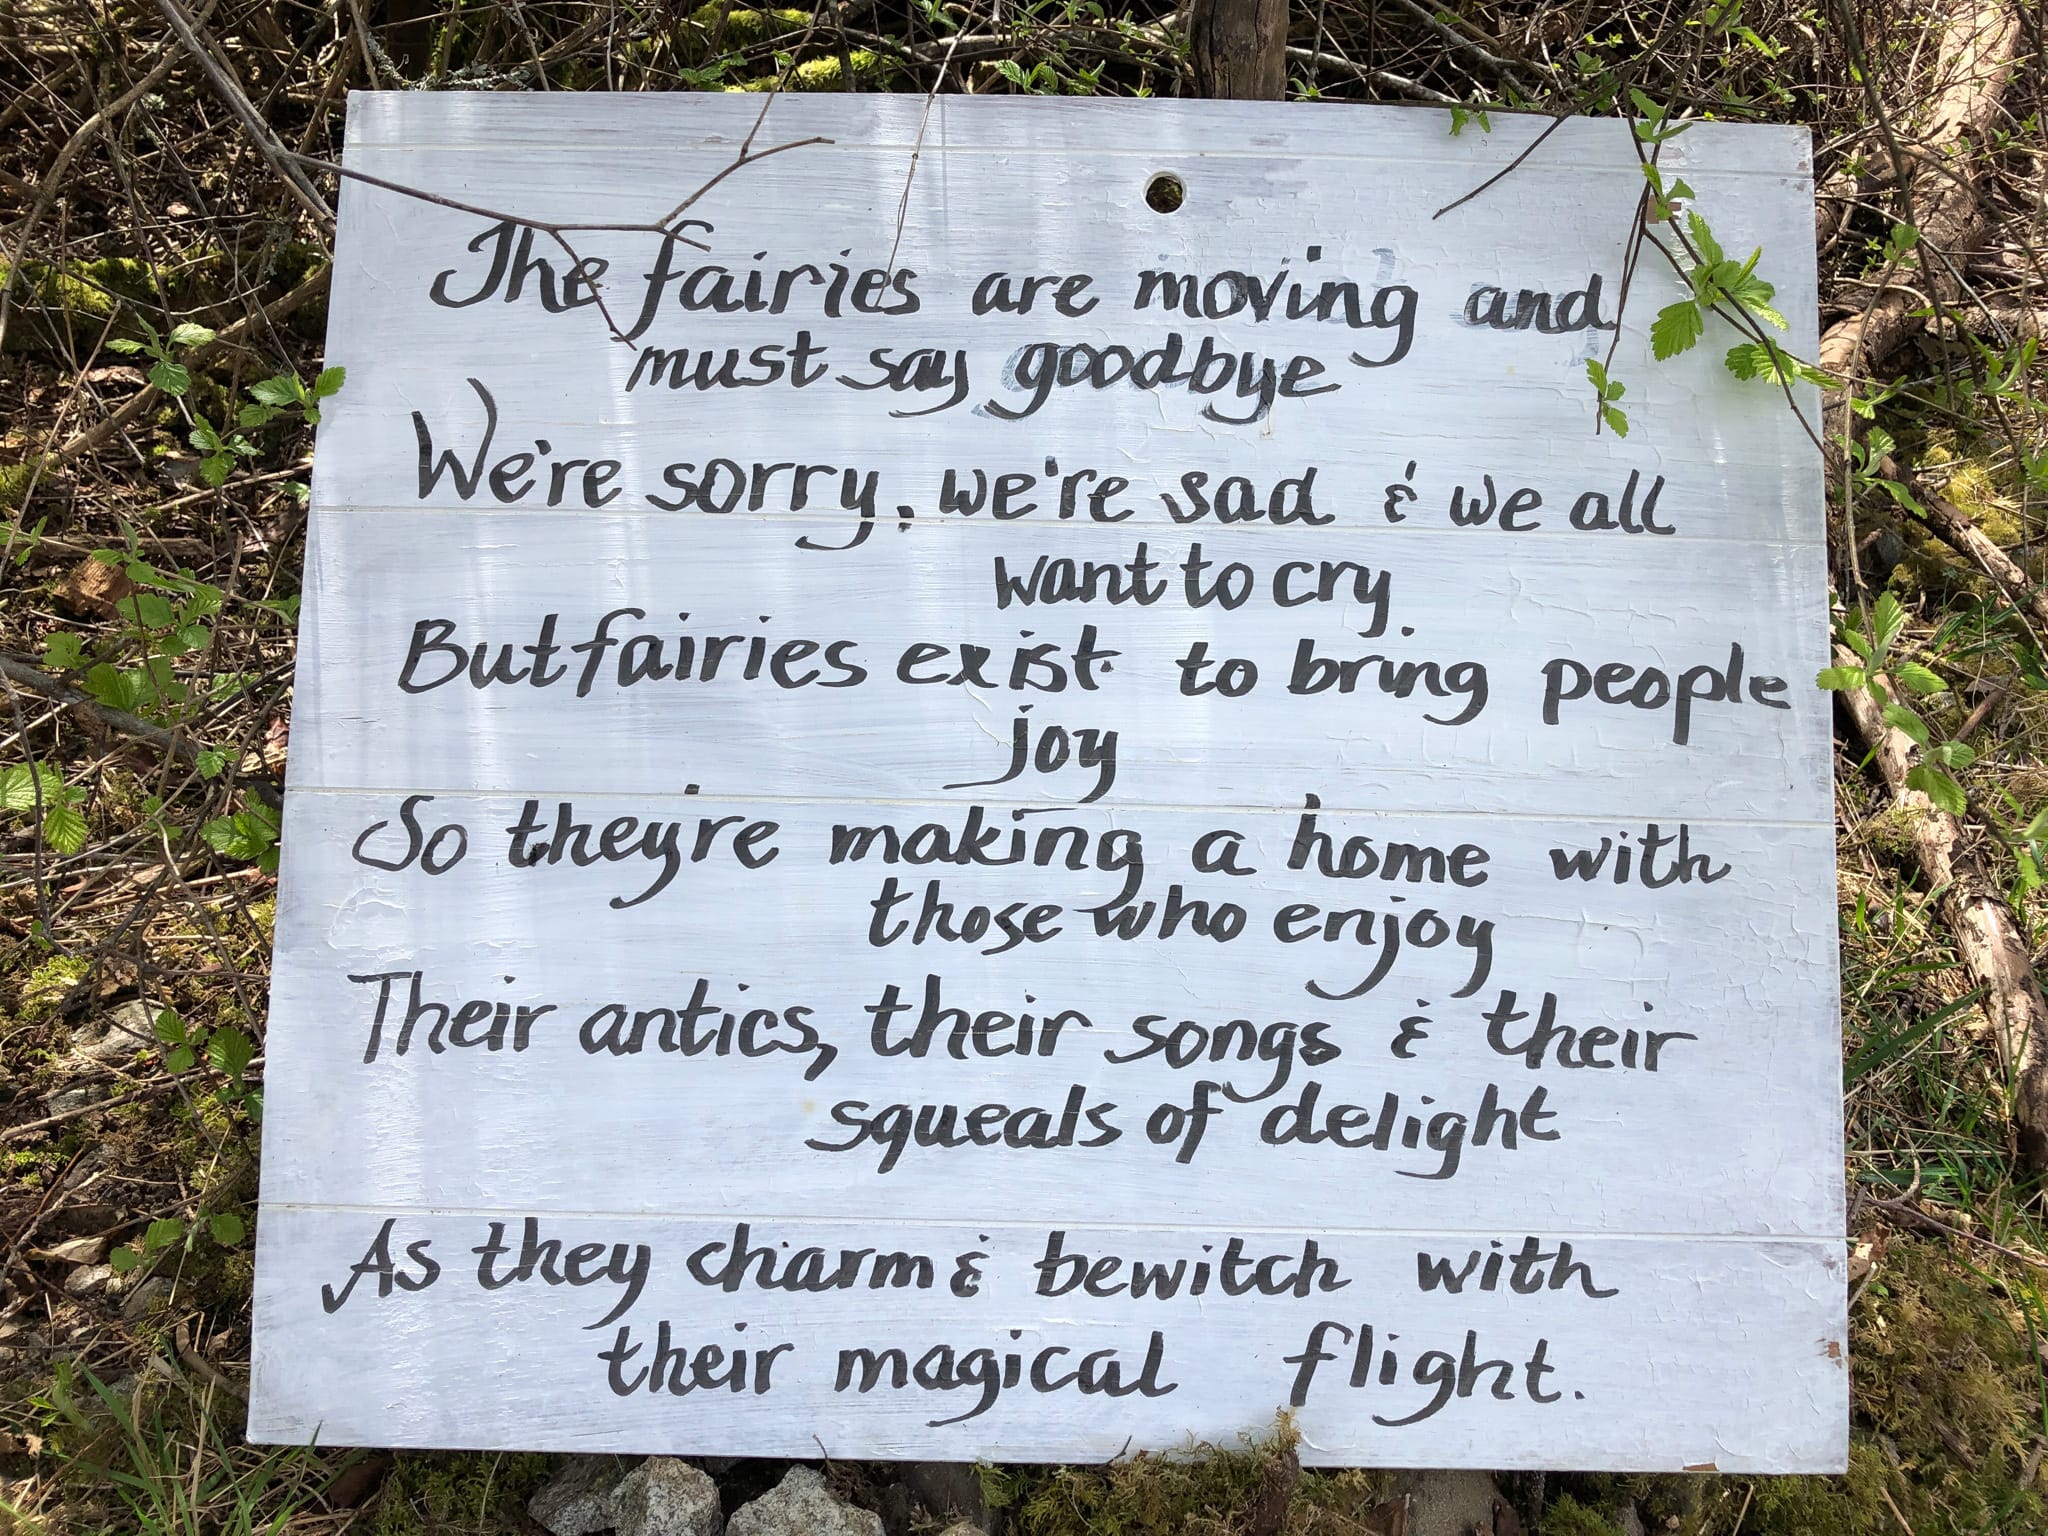 The fairies are moving and
must say goodbye
We're sorry, we're sad & we all
want to cry
But fairies exist to bring people
joy
So they're making a home with
those who enjoy
Their antics, their songs & their
squeals of delight
As they charm & bewitch with
their magical flight.